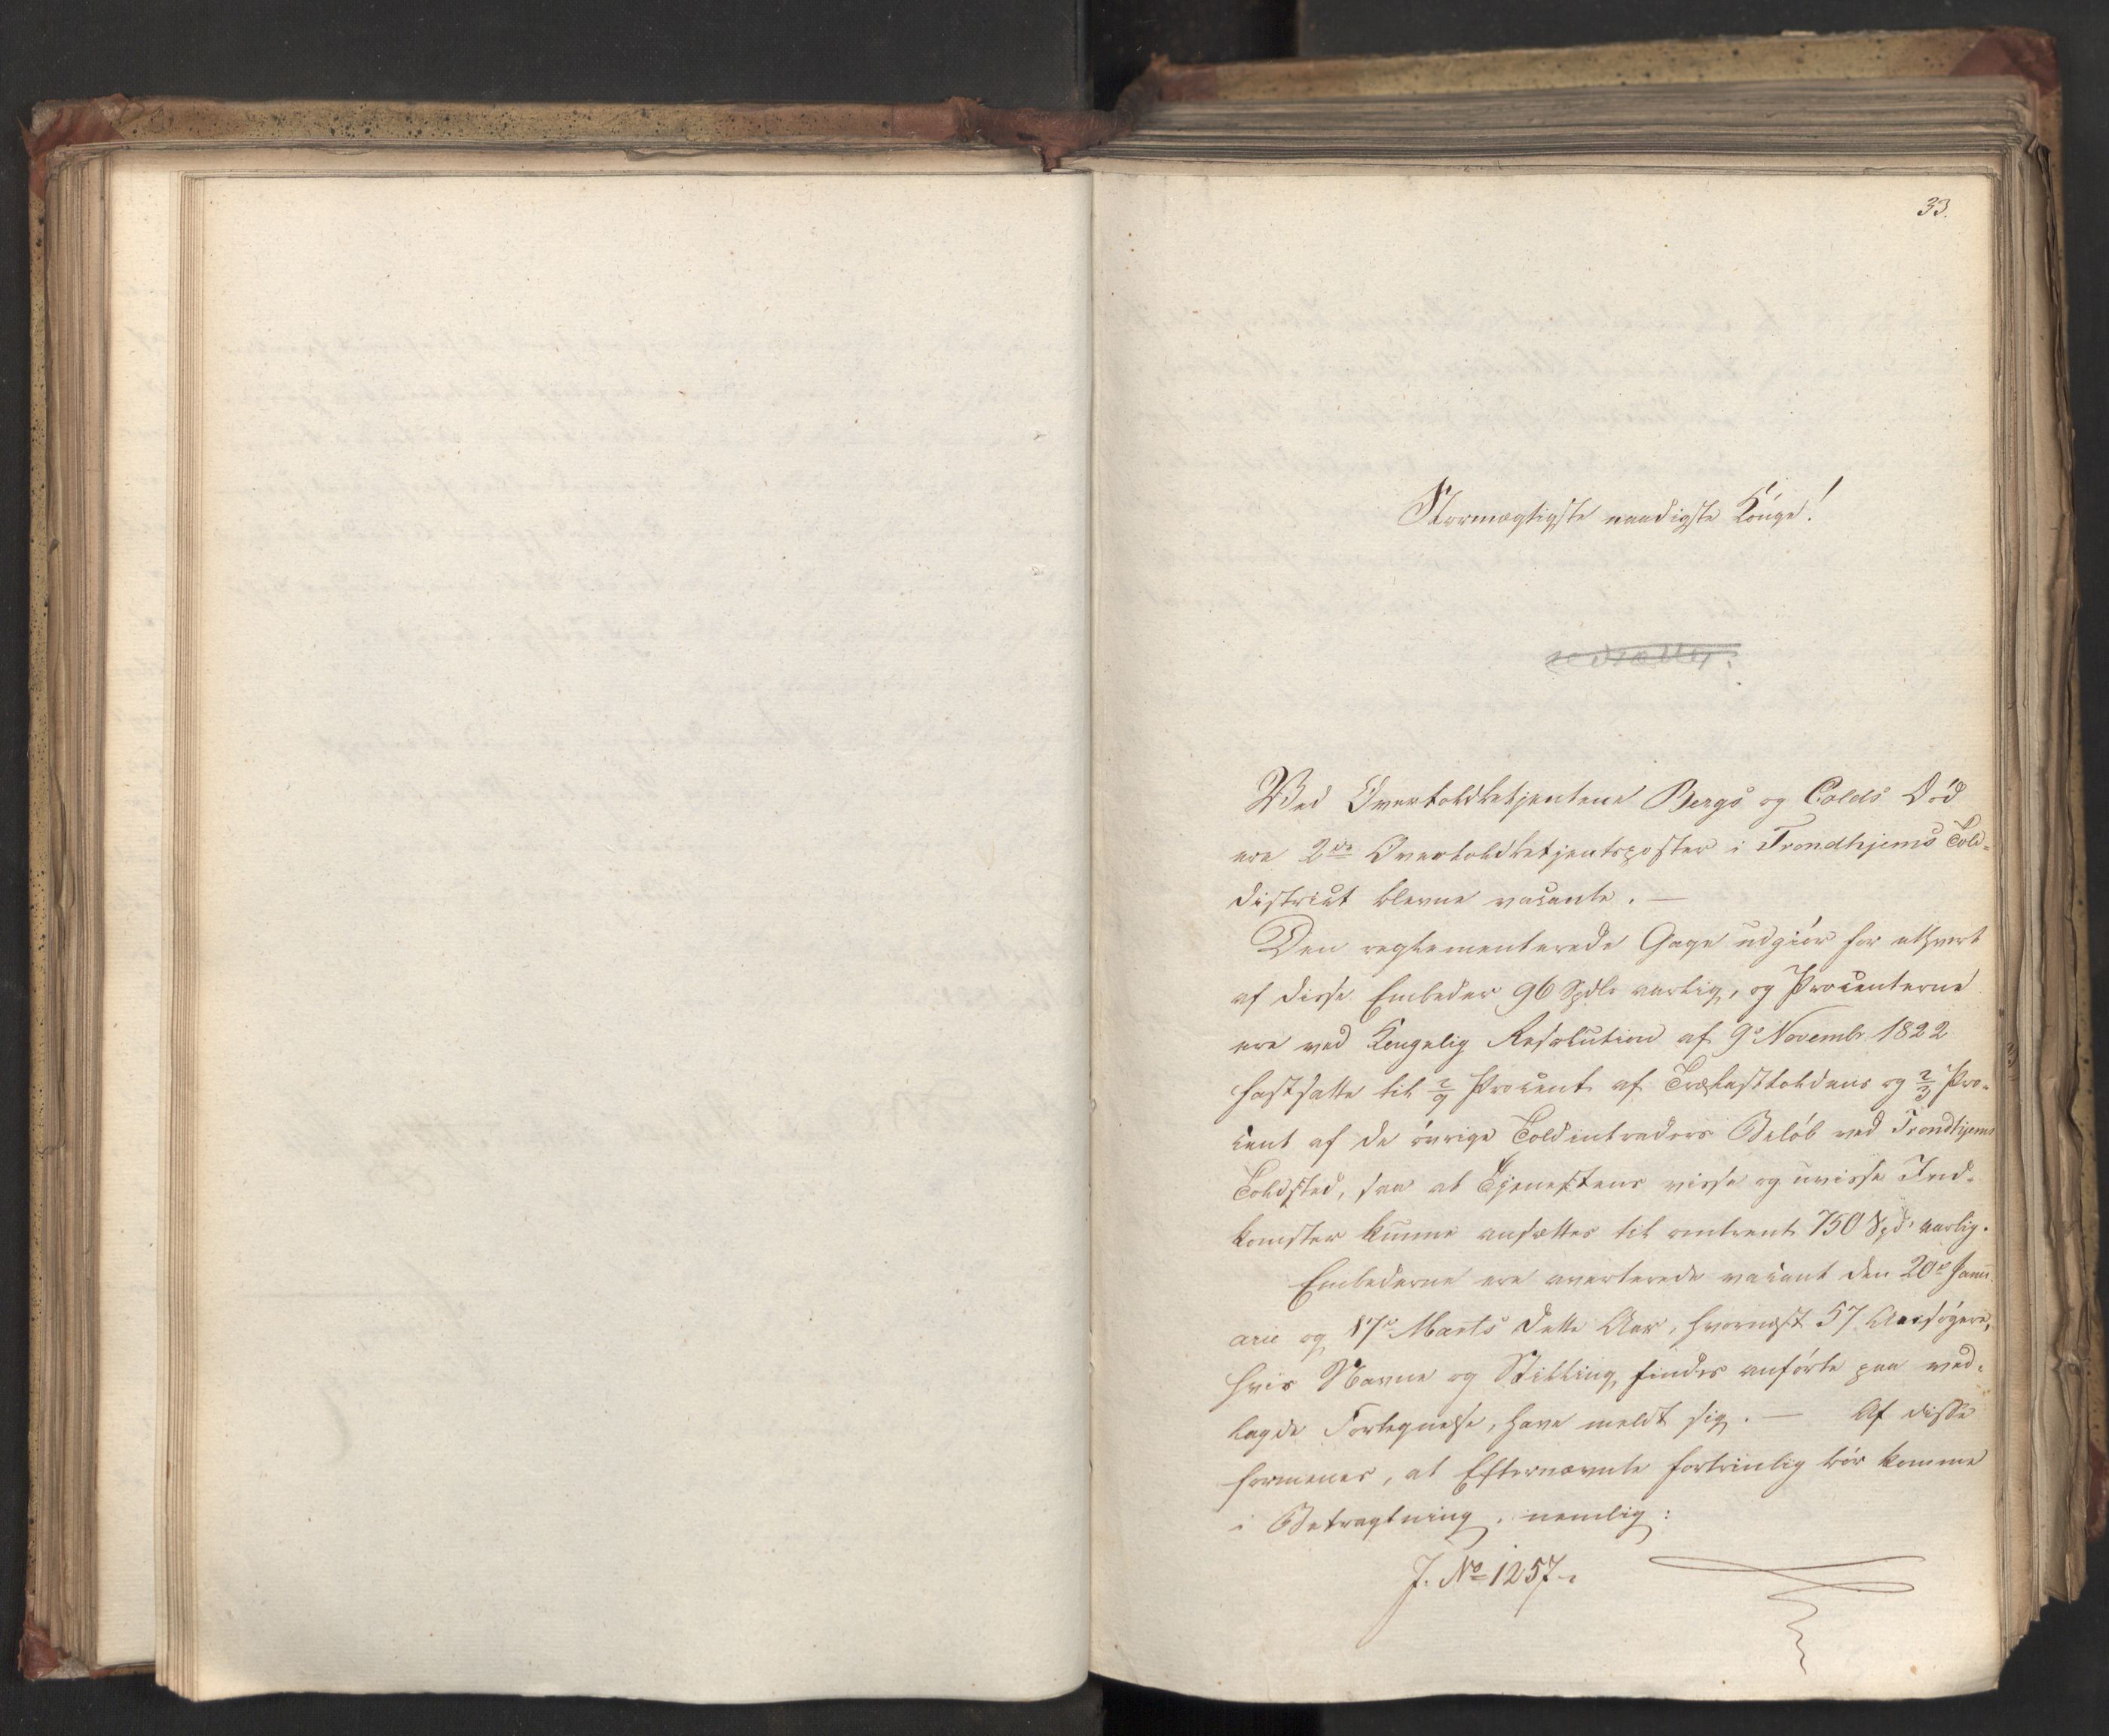 33.
Stormægtigste naadigste Konge!
Ved Overtoldbetjentene Bergs og Colds Død
ere 2de Overtoldbetjentsposter i Trondhjems Told-
district blevne vacante. —
Den reglementerede Gage udgiör for ethvert
af disse Embeder 96 Spdlr aarlig, og Procenterne
ere ved Kongelig Resolution af 9e Novembr 1822
fastsatte til 2/9 Procent af Trælasttoldens og 2/3 Pro-
cent af de övrige Toldintraders Belöb ved Trondhjems
Toldsted, saa at Tjenestens visse og uvisse Ind-
komster kunne ansættes til omtrent 750 Spd. aarlig.
Embederne ere averterede vacant den 20e Janu-
arii og 17e Marts dette Aar, hvornæst 57 Ansögere,
hvis Navne og Stilling findes anförte paa ved-
lagde Fortegnelse, have meldt sig. — Af disse
formenes, at Efternævnte fortrinlig bör komme
i Betragtning, nemlig:
J. No 1257.